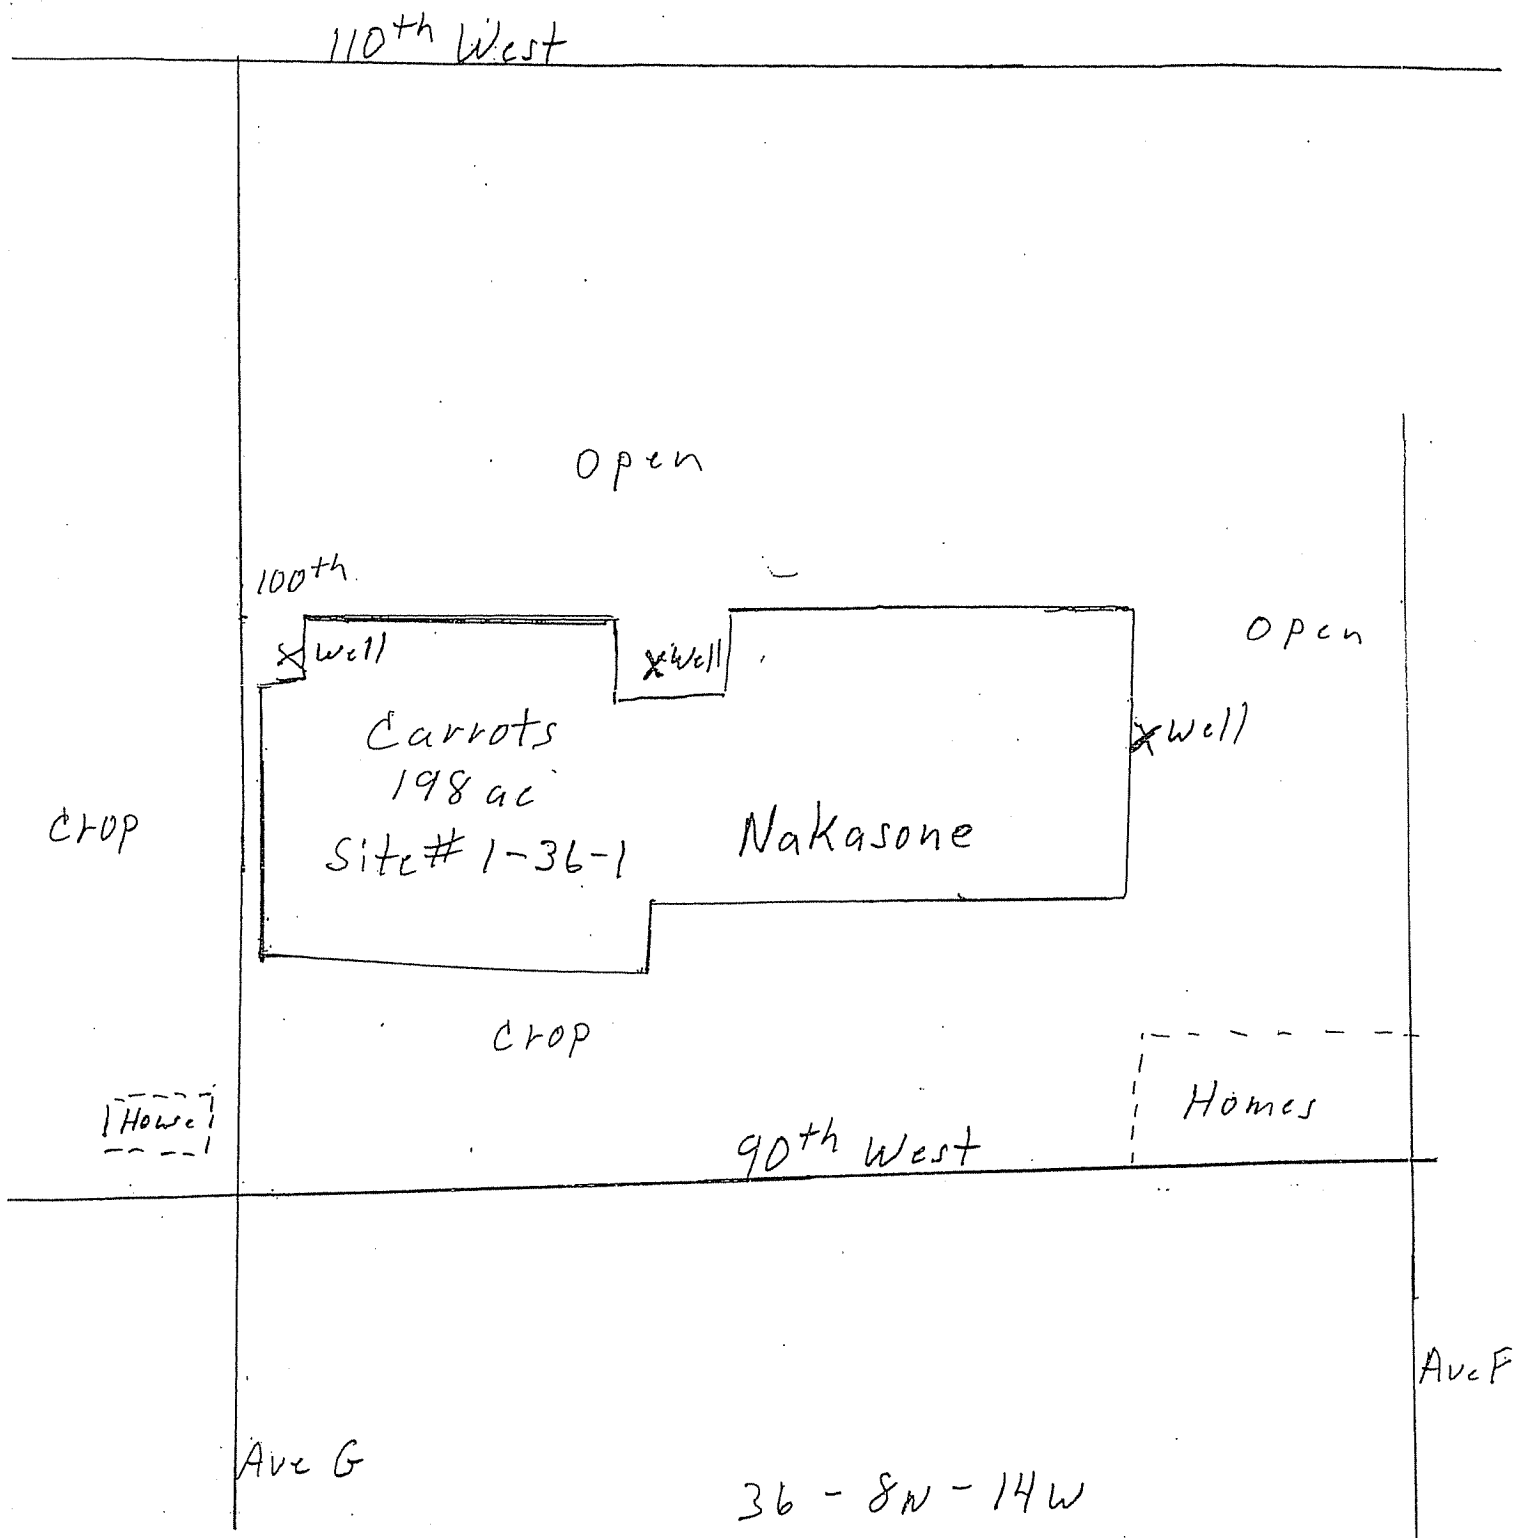 110th West
Open
100th
Well
Well
Open
Well
Carrots
198 ac
Site# 1-36-1
Nakasone
Crop
Crop
House
Homes
90th West
Ave F
Ave G
36 - 8N - 14W